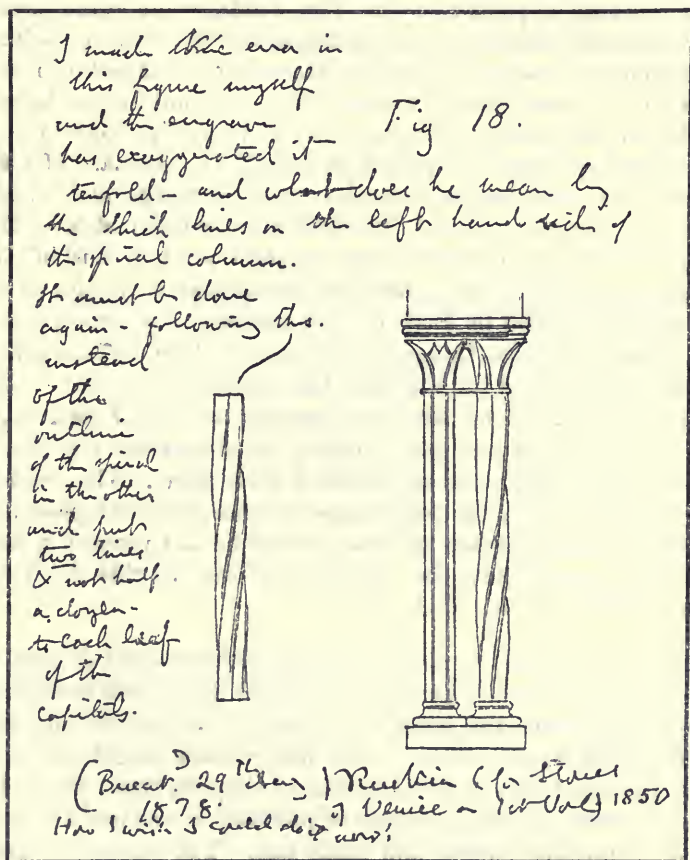 I made the error in
this figure myself
and the engraver
has exaggerated it
Fig 18.
tenfold – and what does he mean by
the thick lines on the left hand side of
the spiral column.
It must be done
again – following this.
instead
of the
outline
of the spiral
in the other
and put
two lines
& not half
a dozen –
to each leaf
of the
capitals.
( 29th ) Ruskin (for Stones
1878. of Venice 1st Vol) 1850
How I wish I could do it now!